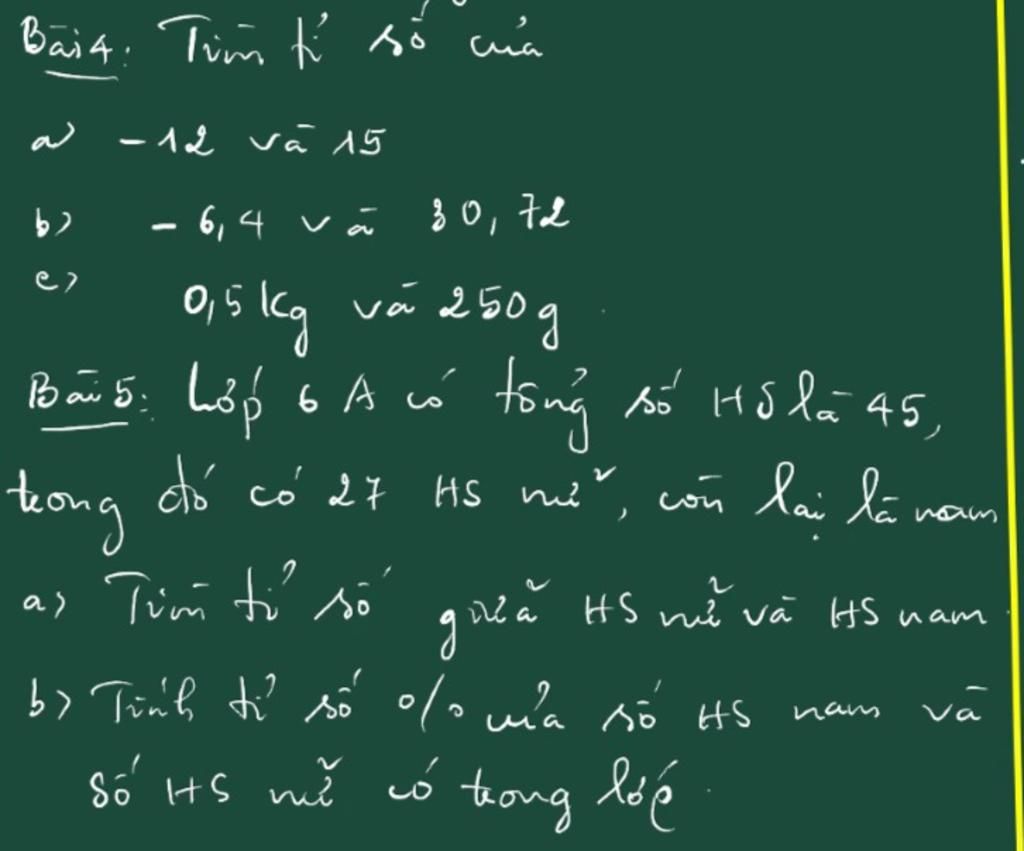 Bài 4: Tìm tỉ số của
a) -12 và 15
b) -6,4 và 30,72
c) 0,5 kg và 250g.
Bài 5: Lớp 6A có tổng số HS là 45,
trong đó có 27 HS nữ, còn lại là nam
a) Tìm tỉ số giữa HS nữ và HS nam.
b) Tính tỉ số % của số HS nam và
số HS nữ có trong lớp.